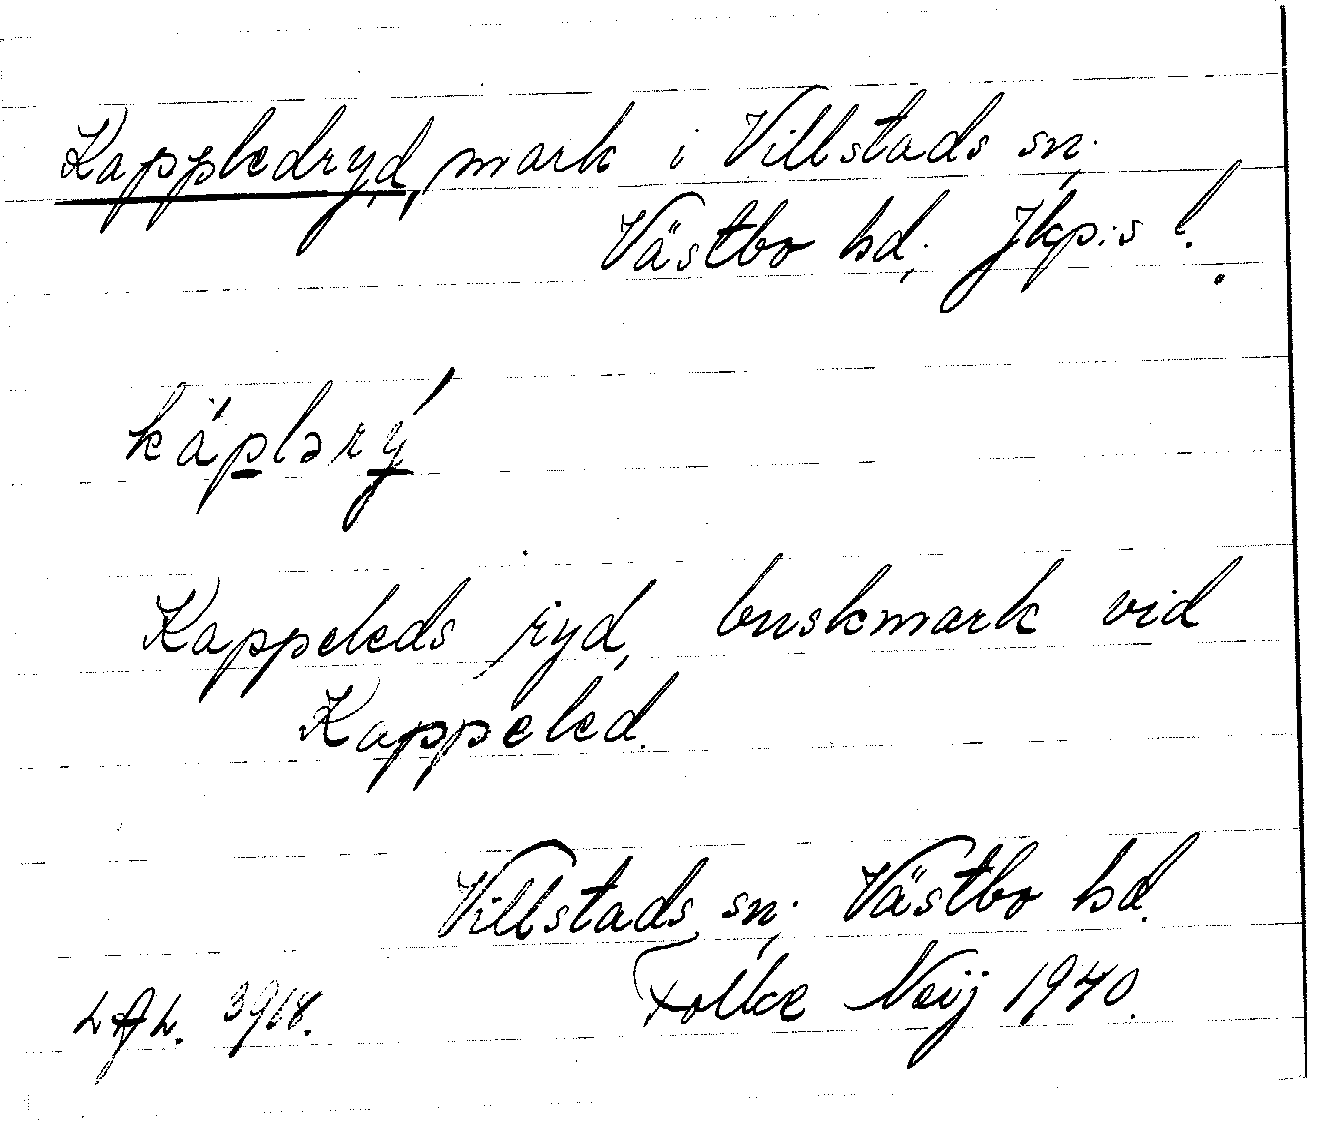 Kappledryd, mark i Villstads sn.
Västbo hd. Jkp:s l.
kaplərý
Kappeleds ryd, buskmark vid
Kappeled.
Villstads sn. Västbo hd.
Folke Neij 1940.
3918.